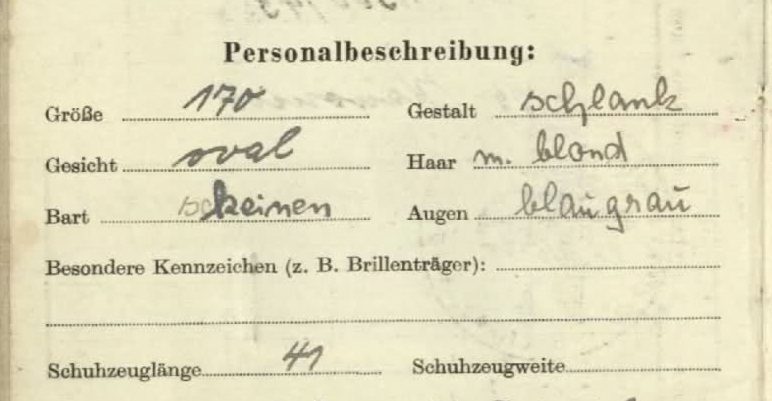 Personalbeschreibung:
Größe 170 Gestalt schlank
Gesicht oval Haar m. blond
Bart keinen Augen blaugrau
Besondere Kennzeichen (z. B. Brillenträger):
Schuhzeuglänge 41 Schuhzeugweite